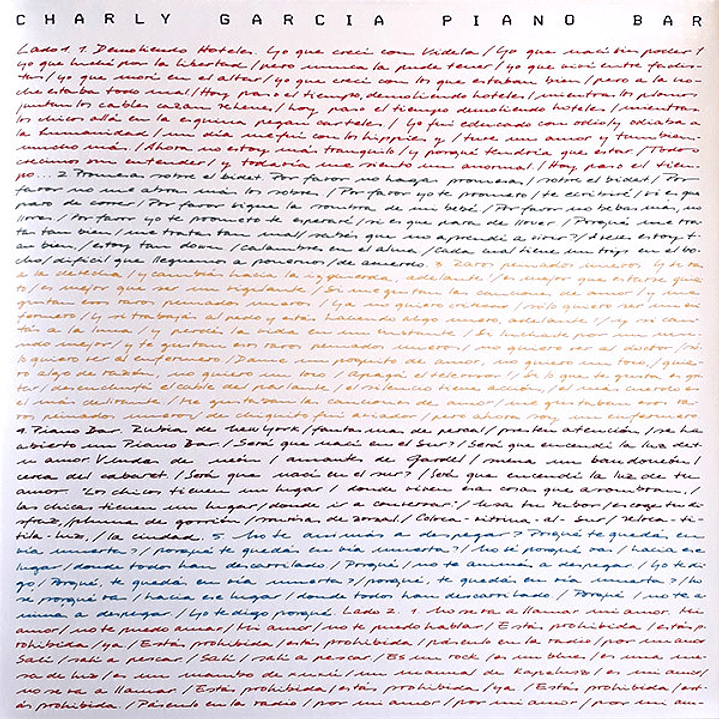 CHARLY GARCIA PIANO BAR
Lado 1. 1. Demoliendo Hoteles. Yo que crecí con Videla / Yo que nací sin poder /
yo que luché por la libertad / pero nunca la pude tener / yo que viví entre fachis-
tas / yo que morí en el altar / yo que crecí con los que estaban bien / pero a la no-
che estaba todo mal / Hoy paso el tiempo, demoliendo hoteles / mientras los plomos
juntan los cables cazan rehenes, / hoy paso el tiempo demoliendo hoteles / mientras
los chicos allá en la esquina pegan carteles. / Yo fui educado con odio / y odiaba a
la humanidad / un día me fui con los hippies y / tuve un amor y también
mucho más. / Ahora no estoy más tranquilo / y porqué tendría que estar / Todos
crecimos sin entender / y todavía me siento un anormal. / Hoy paso el tiem-
po... 2 Promesas sobre el bidet. Por favor no hagas promesas / sobre el bidet / Por
favor no me abras más los sobres / Por favor yo te prometo / te escribiré / si es que
paro de correr / Por favor sigue la sombra de mi bebé / Por favor no bebas más, no
llores / Por favor yo te prometo te esperaré / si es que para de llover / Porqué me tra-
tas tan bien / me tratas tan mal / sabés que no aprendí a vivir? / A veces estoy t-
an bien, / estoy tan down / calambres en el alma / cada cual tiene un trip en el bo-
cho / difícil que lleguemos a ponernos / de acuerdo. 3 Raros peinados nuevos. Y si va
a la derecha / y cambiás hacia la izquierda, adelante! / es mejor que estarse quie-
to / es mejor que ser un vigilante / Si me gustan las canciones de amor / y me
gustan esos raros peinados nuevos / Ya no quiero criticar / sólo quiero ser un en-
fermero / Y si trabajás al pedo y estás haciendo algo nuevo, adelante! / y si can-
tás a la luna / y perdés la vida en un instante / Si luchaste por un mu-
ndo mejor / y te gustan esos raros peinados nuevos / no quiero ver al doctor / só-
lo quiero ver al enfermero / Dame un poquito de amor, no quiero un toco, / quie-
ro algo de razón, no quiero un loco / Apagá el televisor! / Si lo que te gusta es gri-
tar / desenchufá el cable del parlante / el silencio tiene acción, / el más cuerdo es
el más delirante. / Me gustaban las canciones de amor / me gustaban esos ra-
ros peinados nuevos / de chiquito fui aviador / pero ahora soy un enfermero
4. Piano Bar. Rubia de New York / fantasmas de percal / presten atención / se ha
abierto un Piano Bar. / Será que nací en el Sur? / Será que encendí la luz de t-
u amor. Viudas de neón / amantes de Gardel / suena un bandoneón /
cerca del cabaret. / Será que nací en el sur? / Será que encendí la luz de tu
amor. "Los chicos tienen un lugar / donde viven esa cosas que asombran, /
las chicas tienen un lugar / donde ir a conversar". / Usa tu rubor / escoge tu di-
sfraz, / pluma de gorrión / sonrisa de zorzal / Coloca-vitrina-al-Sur / veloca-ti-
tila-luz, / la ciudad. 5. No te animás a despegar? Porqué te quedás en
vía muerta? / porqué te quedás en vía muerta? / No sé porqué vas / hacia ese
lugar / donde todos han descarrilado / Porqué / no te animás a despegar. / Yo te di-
go, / Porqué, te quedás en vía muerta? / porqué, te quedás en vía muerta? / No
se porqué vas / hacia ese lugar / donde todos han descarrilado / Porqué / no te a-
nimás a despegar, / Yo te digo porqué. Lado 2. 1. No se va a llamar mi amor. Mi
amor / no te puedo amar / Mi amor / no te puedo hablar / Estás prohibida / estás p-
rohibida / ya / Estás prohibida / estás prohibida / páscnlo en la radio / por mi amor
Salí / salí a pescar / Salí / salí a pescar / Es un rock / es un blues / es una me-
sa de luz / es un mambo de / un manual de Kapelusz / es mi amor /
no se va a llamar. / Estás prohibida / estás prohibida / ya / Estás prohibida / est-
ás prohibida / Pásenlo en la radio / por mi amor / por mi amor / por mi am-